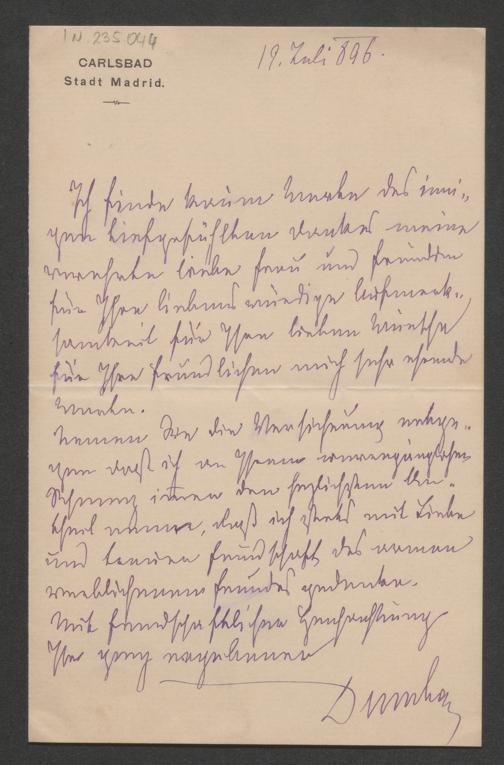 IN. 235 044
CARLSBAD
Stadt Madrid.
19. Juli 896.
Ich finde kaum Worte des inni-
gen tiefgefühlten Dankes meine
verehrte liebe Frau und Freundin
für Ihre liebenswürdige Aufmerk-
samkeit für Ihre lieben Wünsche
für Ihre freundlichen mich sehr ehrende
Worte.
Nemen Sie die Versicherung entge-
gen daß ich an Ihrem
immer den herzlichsten An-
theil neme, daß ich stets mit Liebe
und Freundschaft des armen
Freundes gedenke.
Mit freundschaftlicher Hochachtung
Ihr ganz ergebener
Dumba